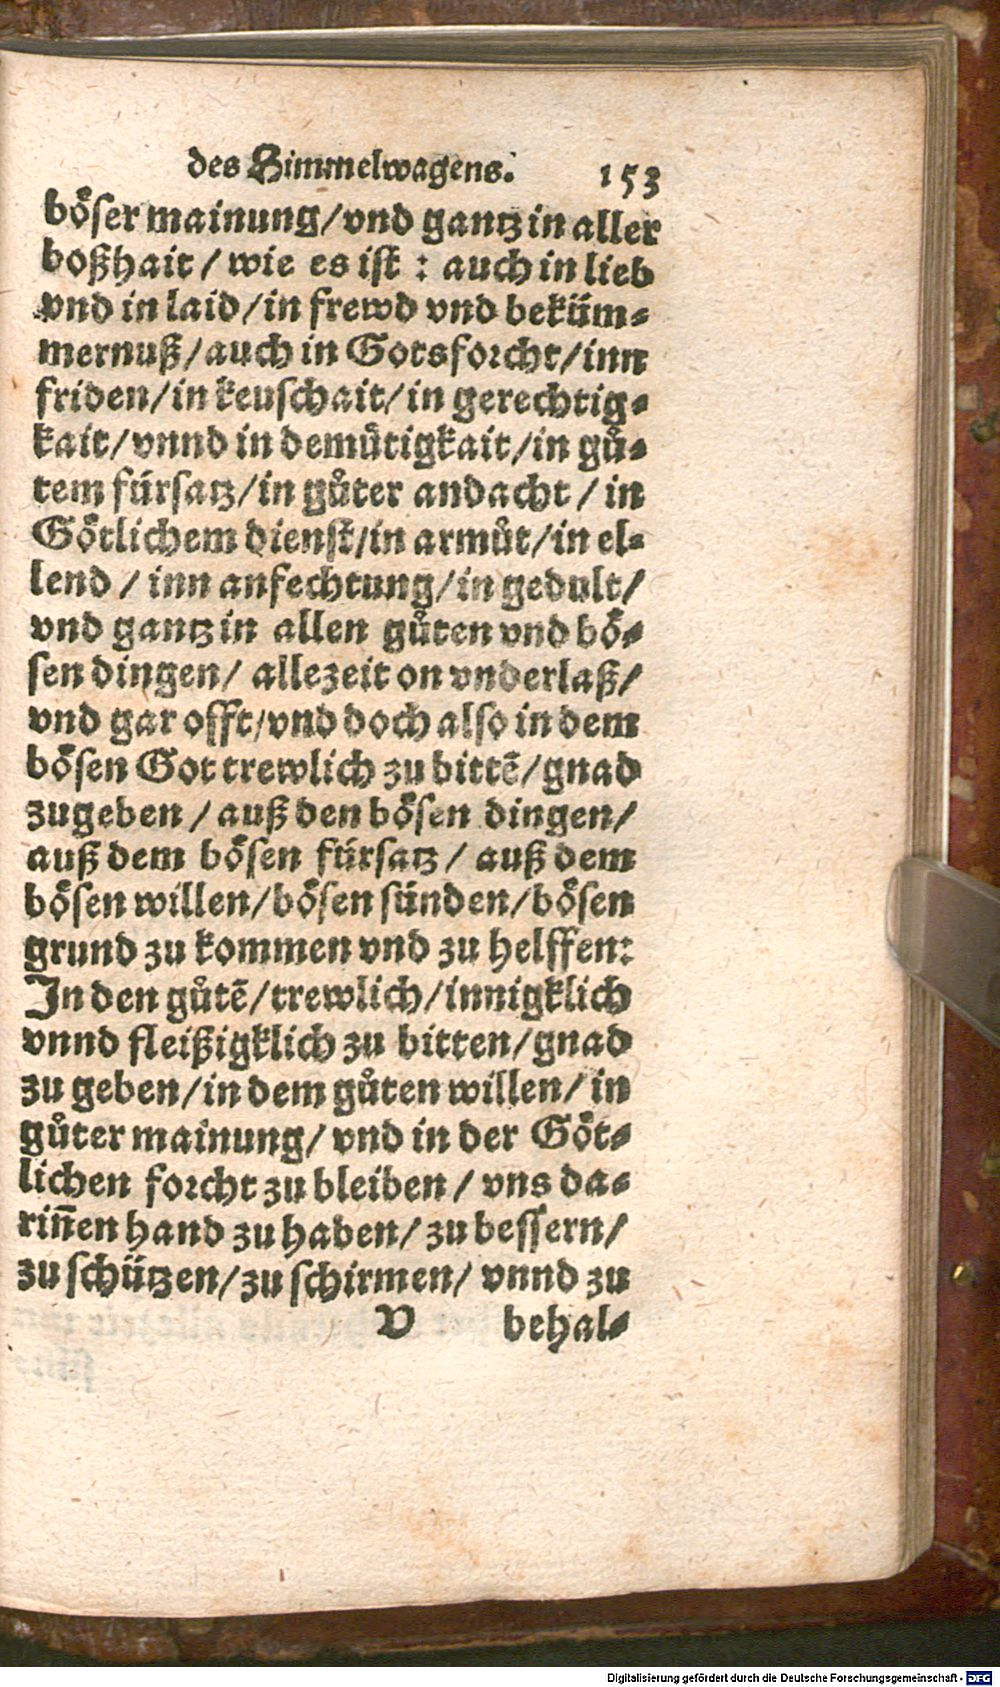 des Himmelwagens. 153
böser mainung/vnd gantz in aller
boßhait / wie es ist : auch in lieb
vnd in laid/in frewd vnd beküm⸗
mernuß/auch in Gotsforcht/inn
friden/in keuschait/in gerechtig⸗
kait/vnnd in demůtigkait/in gů⸗
tem fürsatz/in gůter andacht / in
Götlichem dienst/in armůt/in el⸗
lend / inn anfechtung/in gedult/
vnd gantz in allen gůten vnd bö⸗
sen dingen/ allezeit on vnderlaß/
vnd gar offt/vnd doch also in dem
bösen Got trewlich zu bittē/gnad
zugeben / auß den bösen dingen/
auß dem bösen fürsatz / auß dem
bösen willen/bösen sünden/bösen
grund zu kommen vnd zu helffen:
In den gůtē/trewlich/innigklich
vnnd fleißigklich zu bitten/gnad
zu geben/in dem gůten willen/ in
gůter mainung/ vnd in der Göt⸗
lichen forcht zu bleiben / vns da⸗
riñen hand zu haben/ zu bessern/
zu schützen/zu schirmen/ vnnd zu
V behal⸗
Digitalisierung gefördert durch die Deutsche Forschungsgemeinschaft - DFG